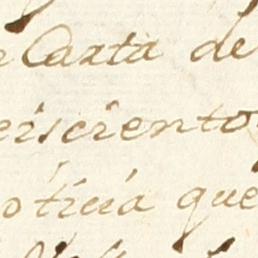 Carta de
eiscientos
oticia que